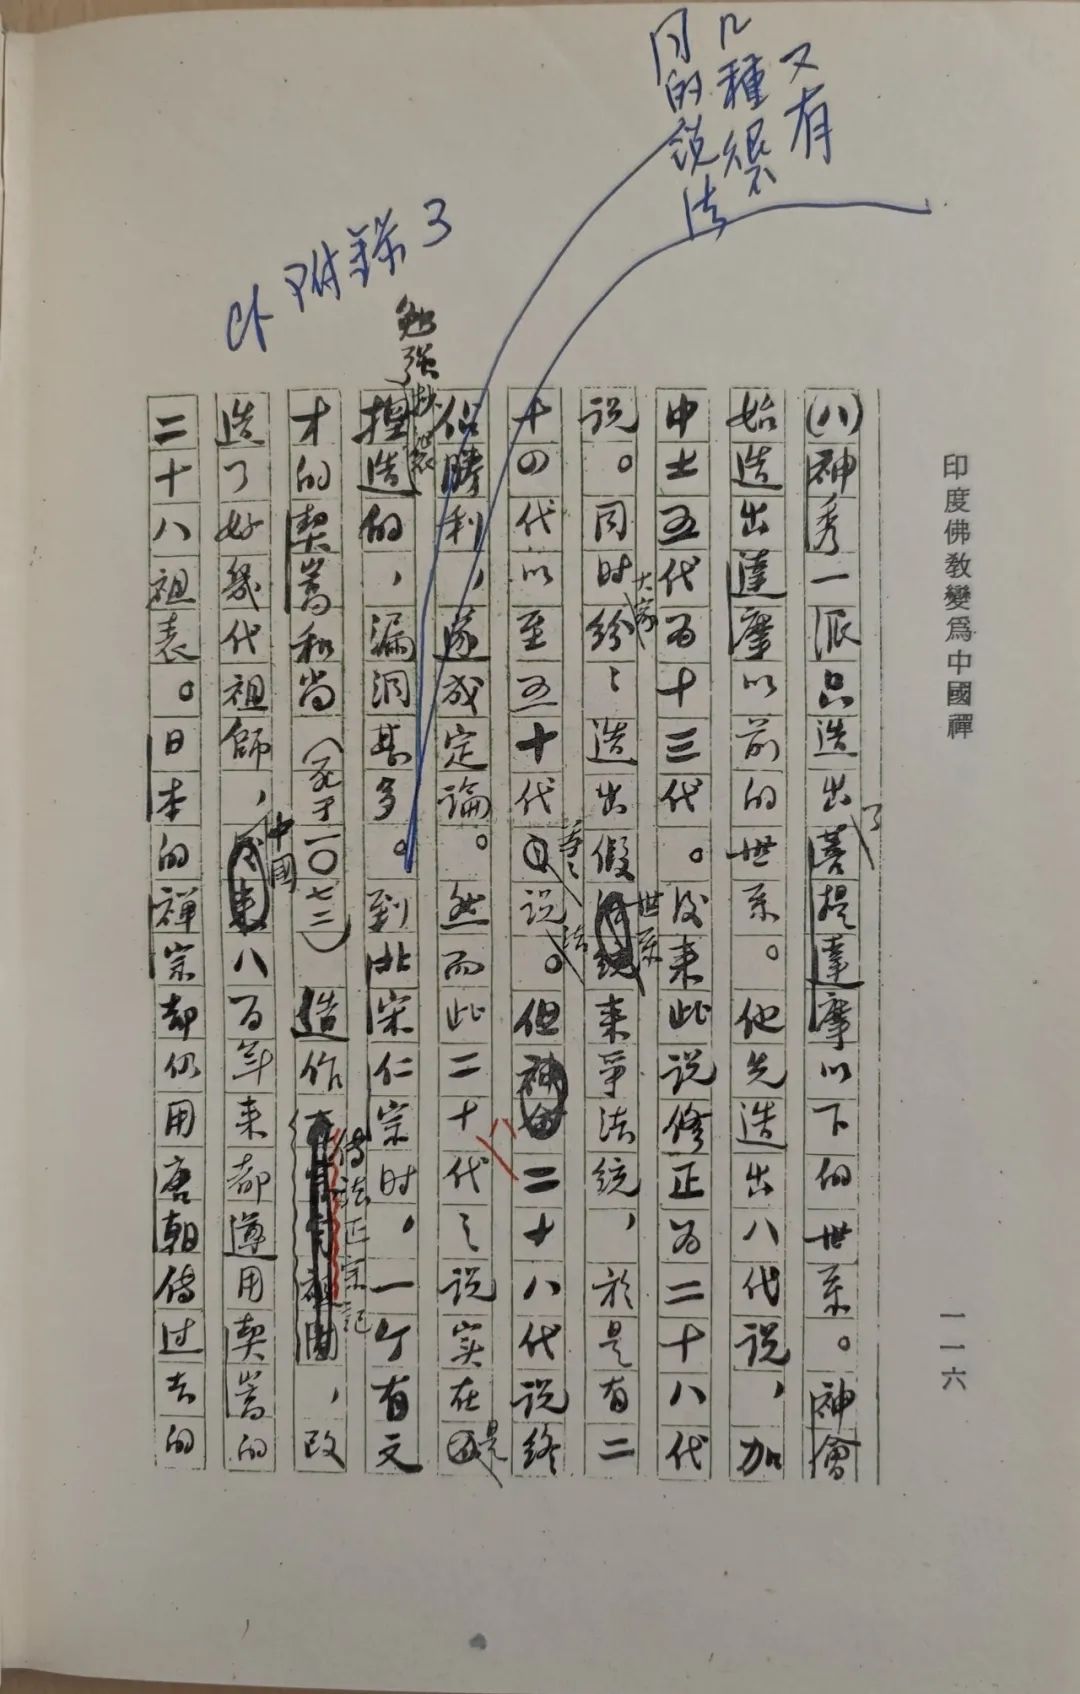 印度佛教變爲中國禪
一一六
又有
几種很不
同的說法
cf 附錄3
(八)神秀一派只造出了菩提達摩以下的世系。神會
始造出達摩以前的世系。他先造出八代说,加
中土五代为十三代。後来此说修正为二十八代
说。同时大家纷々造出假世系来爭法統,於是有二
十四代以至五十代等々说法。但二十八代说终
佔勝利,遂成定論。然而此二十八代之说实在是
勉强抄襲
捏造的,漏洞甚多。到北宋仁宗时,一个有文
才的契嵩和尚(死于一〇七二)造作傳法正宗記,改
造了好幾代祖師,中國八百年来都遵用契嵩的
二十八祖表。日本的禪宗却仍用唐朝傳过去的